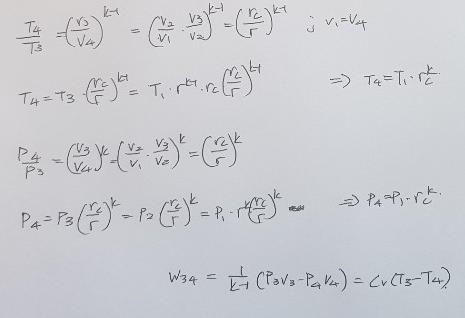 T4/T3 = (V3/V4)^k-1 = (V2/V1 · V3/V2)^k-1 = (rc/r)^k-1 ; V1=V4
T4 = T3 · (rc/r)^k-1 = T1 · r^k-1 · rc (rc/r)^k-1 ⇒ T4=T1 · rc^k.
P4/P3 = (V3/V4)^k = (V2/V1 · V3/V2)^k = (rc/r)^k
P4 = P3 (rc/r)^k = P2 (rc/r)^k = P1 · r^k (rc/r)^k ⇒ P4=P1 · rc^k.
W34 = 1/k-1 (P3V3-P4V4) = Cv (T3-T4)